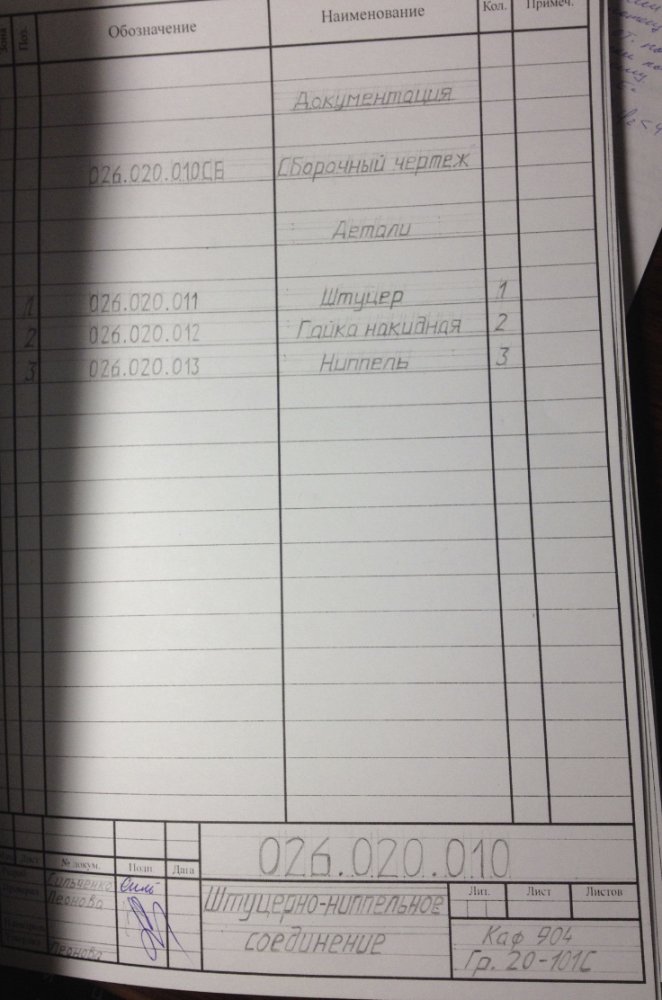 Зона Поз. Обозначение Наименование Кол. Примеч.
Документация
026.020.010СБ Сборочный чертеж
Детали
1 026.020.011 Штуцер 1
2 026.020.012 Гайка накидная 2
3 026.020.013 Ниппель 3
026.020.010
Лист № докум. Подп. Дата
Сильченко Силь
Леонова
Штуцерно-ниппельное
соединение
Лит. Лист Листов
Каф 904
Гр. 20-101С
Леонова